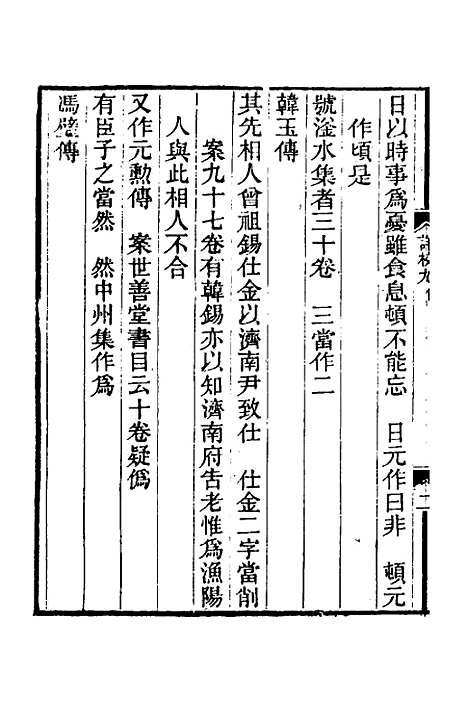 日以時事爲憂雖食息頓不能忘　日元作曰非　頓元
作頃是
號滏水集者三十卷　三當作二
韓玉傳
其先相人曾祖錫仕金以濟南尹致仕　仕金二字當削
案九十七卷有韓錫亦以知濟南府告老惟爲漁陽
人與此相人不合
又作元勳傳　案世善堂書目云十卷疑僞
有臣子之當然　然中州集作爲
馮璧傳